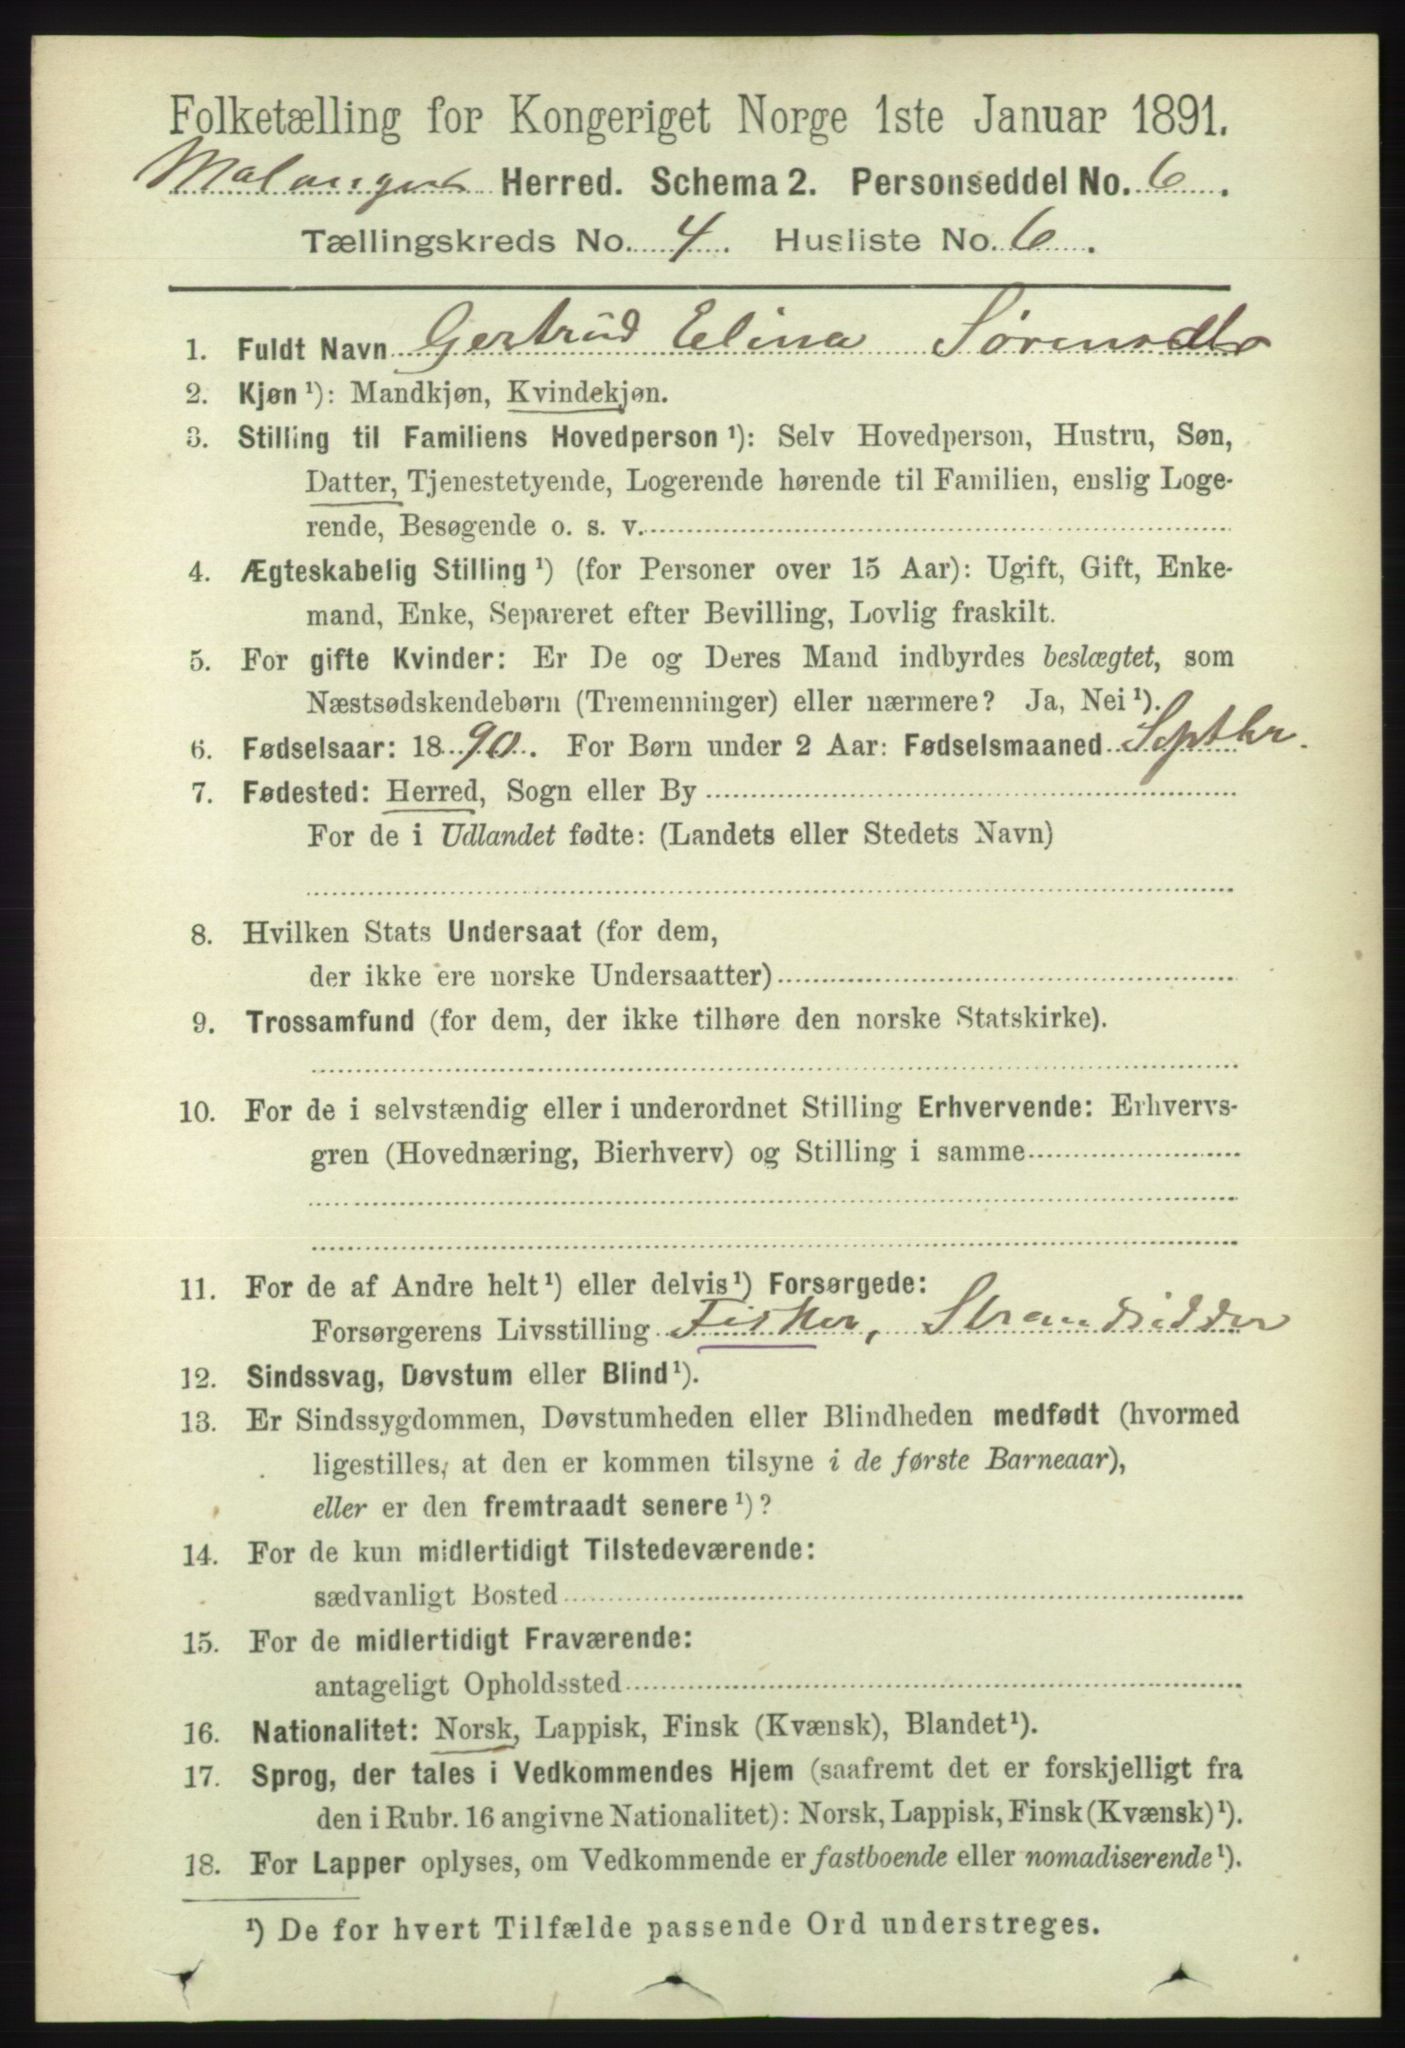 Folketælling for Kongeriget Norge 1ste Januar 1891.
Malanger Herred. Schema 2. Personseddel No. 6.
Tællingskreds No. 4. Husliste No. 6.
1. Fuldt Navn Gertrüd Elina Sørensdtr
2. Kjøn ¹): Mandkjøn, Kvindekjøn.
3. Stilling til Familiens Hovedperson ¹): Selv Hovedperson, Hustru, Søn,
Datter, Tjenestetyende, Logerende hørende til Familien, enslig Loge-
rende, Besøgende o. s. v.
4. Ægteskabelig Stilling ¹) (for Personer over 15 Aar): Ugift, Gift, Enke-
mand, Enke, Separeret efter Bevilling, Lovlig fraskilt.
5. For gifte Kvinder: Er De og Deres Mand indbyrdes beslægtet, som
Næstsødskendebørn (Tremenninger) eller nærmere? Ja, Nei ¹).
6. Fødselsaar: 1890. For Børn under 2 Aar: Fødselsmaaned Septbr.
7. Fødested: Herred, Sogn eller By
For de i Udlandet fødte: (Landets eller Stedets Navn)
8. Hvilken Stats Undersaat (for dem,
der ikke ere norske Undersaatter)
9. Trossamfund (for dem, der ikke tilhøre den norske Statskirke).
10. For de i selvstændig eller i underordnet Stilling Erhvervende: Erhvervs-
gren (Hovednæring, Bierhverv) og Stilling i samme
11. For de af Andre helt ¹) eller delvis ¹) Forsørgede:
Forsørgerens Livsstilling Fisker, Strandsidder
12. Sindssvag, Døvstum eller Blind ¹).
13. Er Sindssygdommen, Døvstumheden eller Blindheden medfødt (hvormed
ligestilles, at den er kommen tilsyne i de første Barneaar),
eller er den fremtraadt senere ¹)?
14. For de kun midlertidigt Tilstedeværende:
sædvanligt Bosted
15. For de midlertidigt Fraværende:
antageligt Opholdssted
16. Nationalitet: Norsk, Lappisk, Finsk (Kvænsk), Blandet ¹).
17. Sprog, der tales i Vedkommendes Hjem (saafremt det er forskjelligt fra
den i Rubr. 16 angivne Nationalitet): Norsk, Lappisk, Finsk (Kvænsk) ¹).
18. For Lapper oplyses, om Vedkommende er fastboende eller nomadiserende ¹).
¹) De for hvert Tilfælde passende Ord understreges.